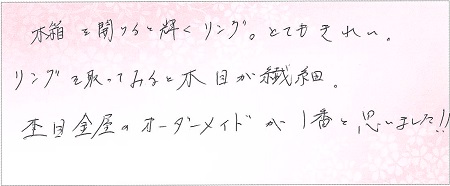 木箱を開けると輝くリング。とてもきれい。
リングを取ってみると木目が繊細。
杢目金屋のオーダーメイドが1番と思いました!!